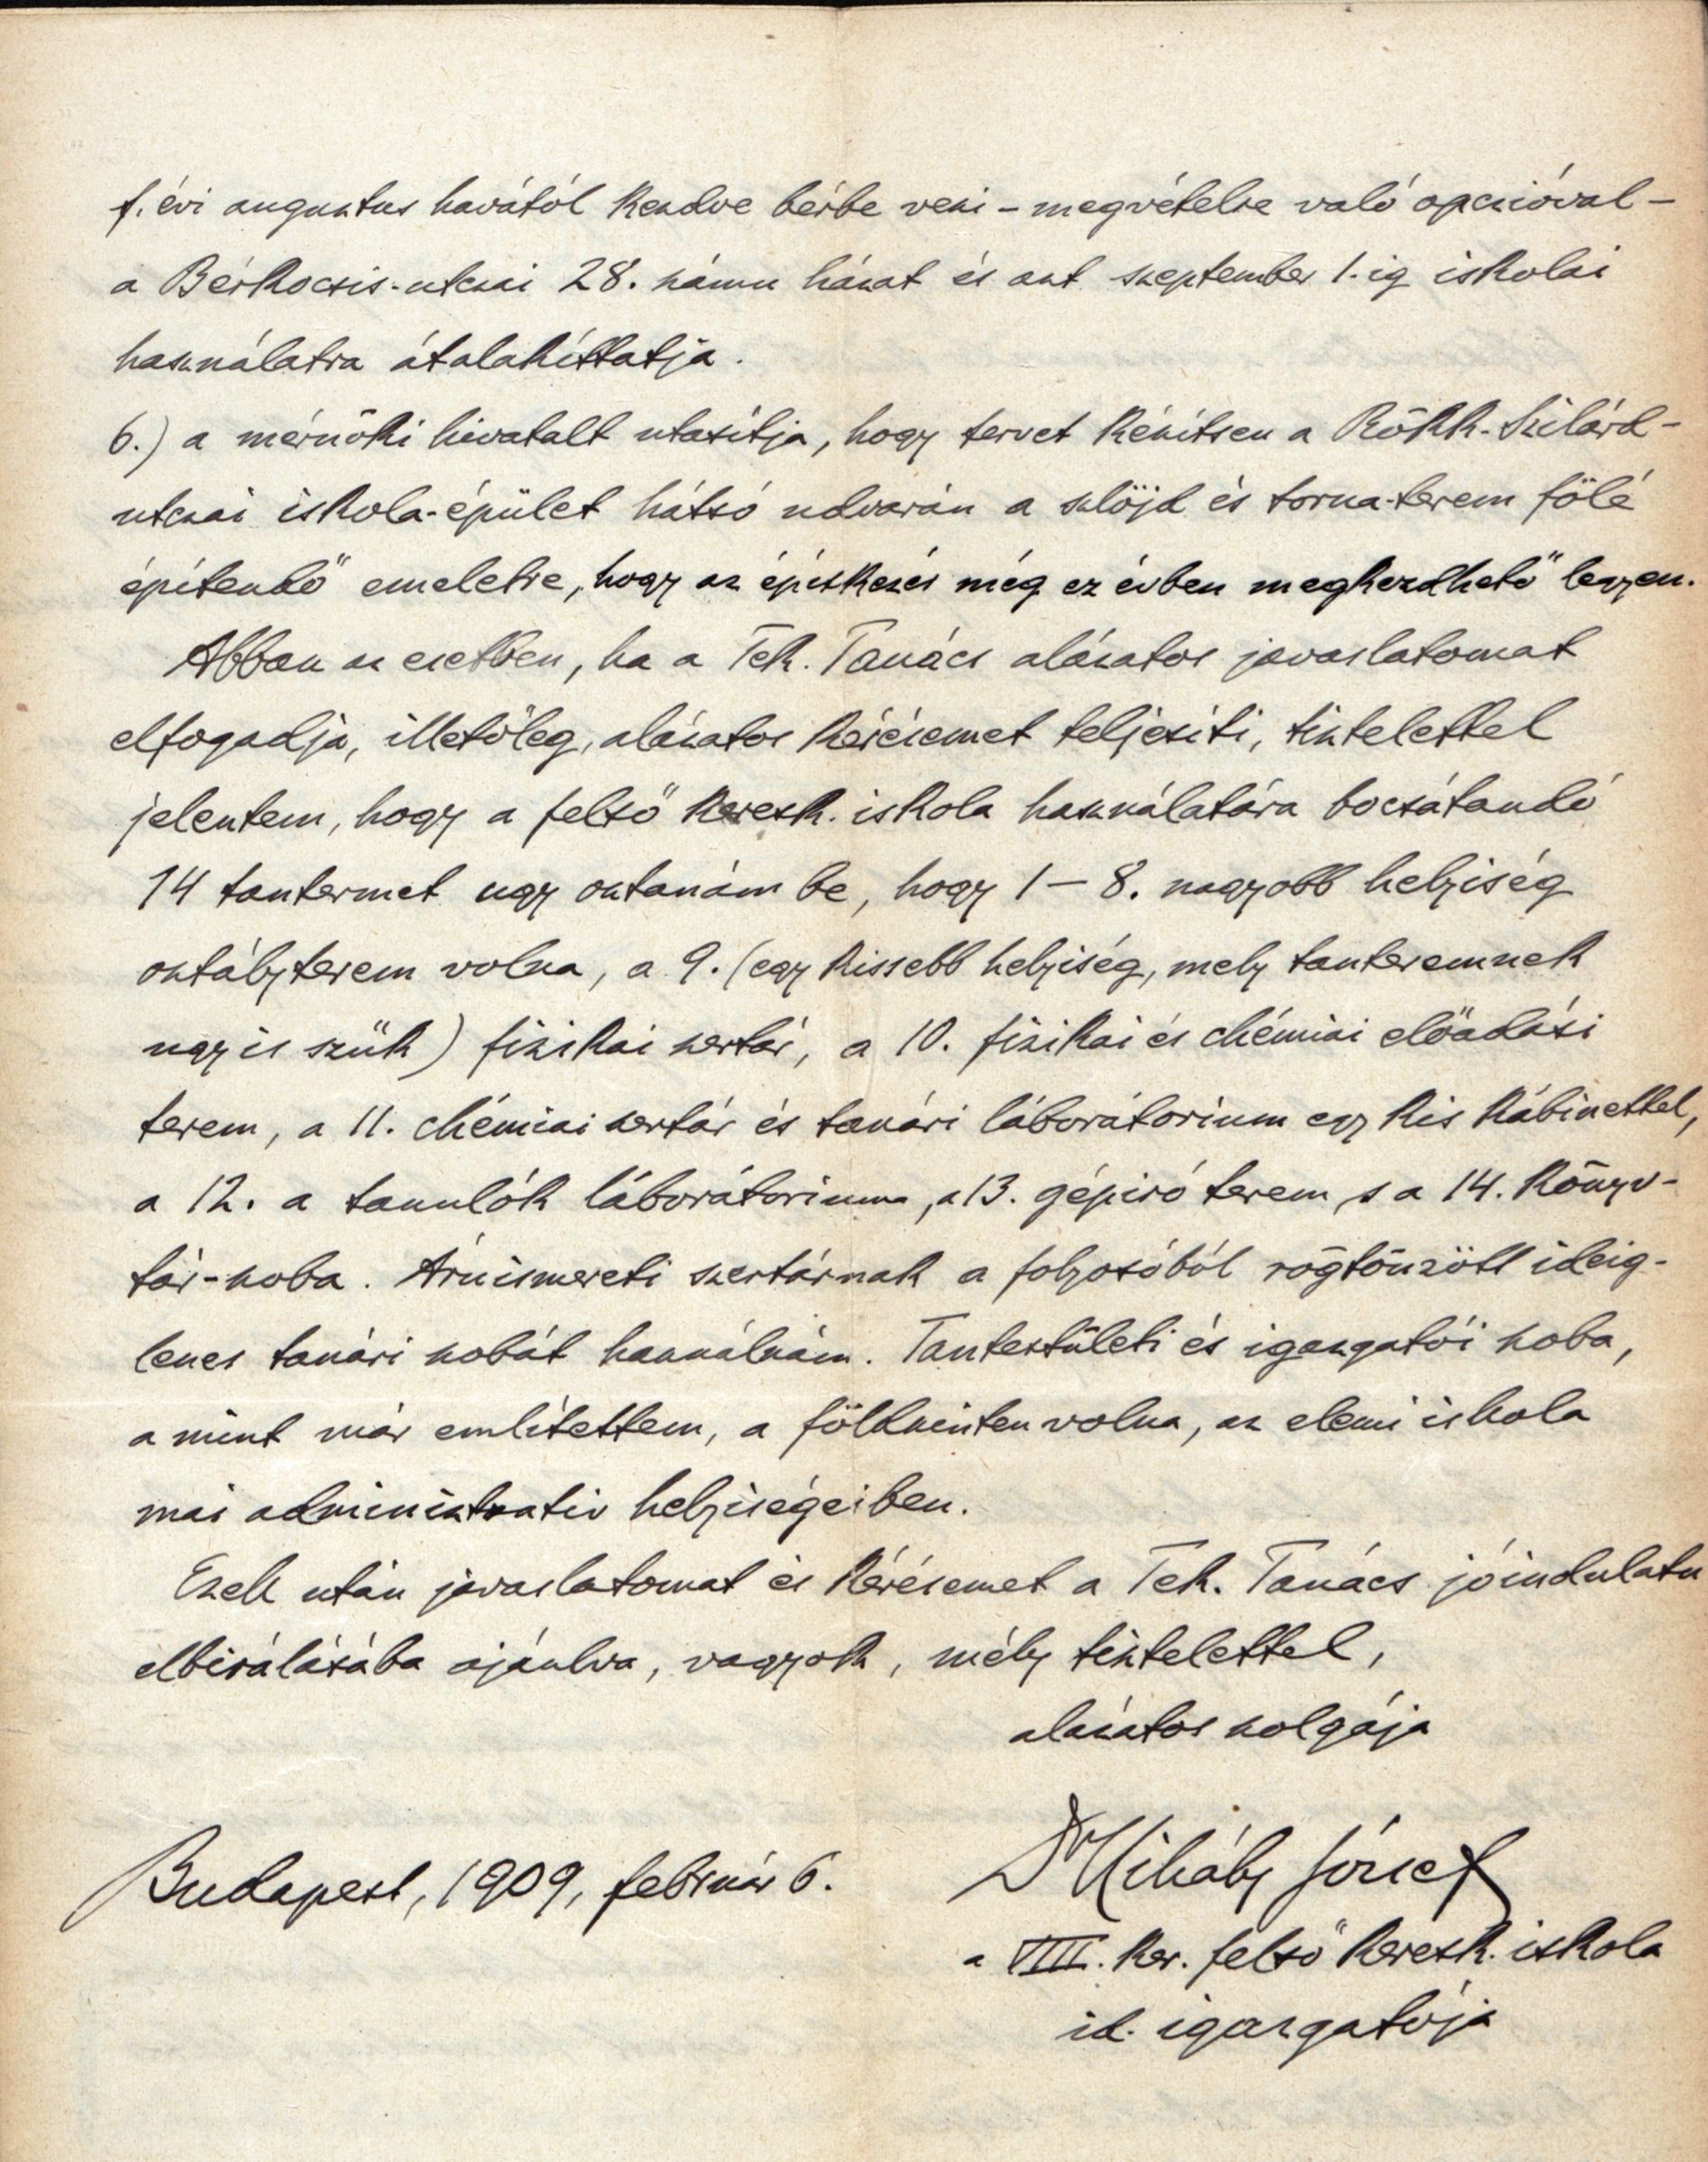 f. évi augusztus havától kezdve bérbe veszi – megvételre való opcióval –
a Bérkocsis-utcai 28. számu házat és azt szeptember 1.-ig iskolai
használatra átalakíttatja.
6.) a mérnöki hivatalt utasítja, hogy tervet készítsen a Rökk-Szilárd-
utcai iskola-épület hátsó udvarán a slöjd és torna-terem fölé
építendő emeletre, hogy az építkezés még ez évben megkezdhető legyen.
Abban az esetben, ha a Tek. Tanács alázatos javaslatomat
elfogadja, illetőleg, alázatos kérésemet teljesíti, tisztelettel
jelentem, hogy a felső keresk. iskola használatára bocsátandó
14 tantermet ugy osztanám be, hogy 1–8. nagyobb helyiség
osztályterem volna, a 9. (egy kissebb helyiség, mely tanteremnek
ugy is szük) fizikai szertár, a 10. fizikai és chémiai előadási
terem, a 11. chémiai szertár és tanári láborátorium egy kis kábinettel,
a 12. a tanulók láborátoriuma, a 13. gépiró terem, s a 14. könyv-
tár-szoba. Áruismereti szertárnak a folyosóból rögtönzött ideig-
lenes tanári szobát használnám. Tantestületi és igazgatói szoba,
a mint már említettem, a földszinten volna, az elemi iskola
mai adminisztratív helyiségeiben.
Ezek után javaslatomat és kérésemet a Tek. Tanács jóindulatu
elbirálására ajánlva, vagyok, mély tisztelettel,
alázatos szolgája
Budapest, 1909, február 6.
Dr Mihály József
a VIII. ker. felső keresk. iskola
id. igazgatója